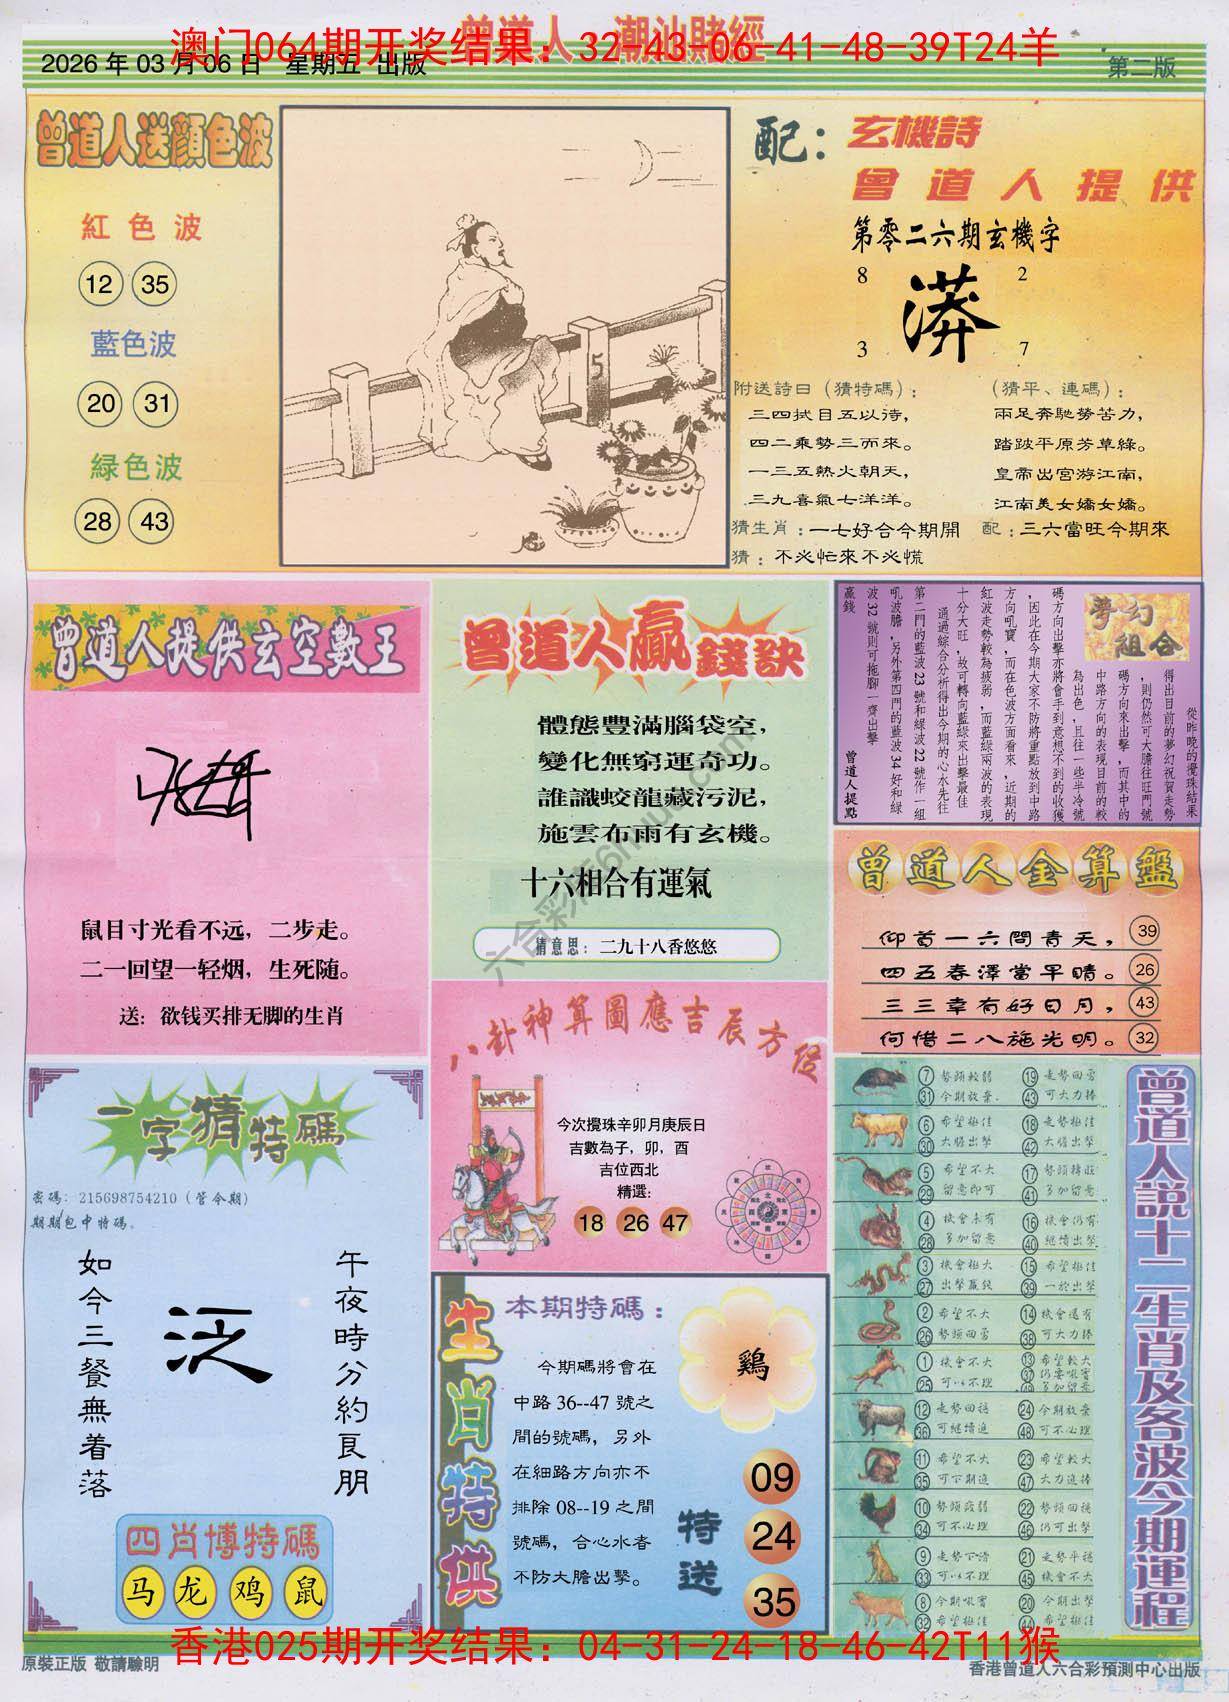 曾道人·潮汕賭經
澳门064期开奖结果：32-43-06-41-48-39T24羊
2026 年 03 月 06 日 星期五 出版
第二版
曾道人送顏色波
紅色波
12 35
藍色波
20 31
緑色波
28 43
5
配：
玄機詩
曾道人提供
第零二六期玄機字
8 2
漭
3 7
附送詩曰（猜特碼）：
三四拭目五以待，
四二乘勢三而來。
一三五熱火朝天，
三九喜氣七洋洋。
（猜平、連碼）：
兩足奔馳勞苦力，
踏跛平原芳草綠。
皇帝出宮游江南，
江南美女嬌女嬌。
猜生肖：一七好合今期開
配：三六當旺今期來
猜：不必忙來不必慌
曾道人提供玄空數王
鼠目寸光看不远，二步走。
二一回望一轻烟，生死随。
送：欲钱买排无脚的生肖
曾道人贏錢訣
體態豐滿腦袋空，
變化無窮運奇功。
誰識蛟龍藏污泥，
施雲布雨有玄機。
十六相合有運氣
猜意思：二九十八香悠悠
夢幻組合
從昨晚的攪珠結果
得出目前的夢幻祝賀走勢
，則仍然可大膽往旺門號
碼方向來出擊，而其中的
中路方向的表現目前的較
為出色，且往一些半冷號
碼方向出擊亦將會手到意想不到的收獲
，因此在今期大家不防將重點放到中路
方向吼寶，而在色波方面看來，近期的
紅波走勢較為疲弱，而藍綠兩波的表現
十分大旺，故可轉向藍綠來出擊最佳
通過綜合分析得出今期的心水先往
第二門的藍波23號和緑波22號作一組
吼波膽，另外第四門的藍波34好和緑
波32號則可拖腳一齊出擊
贏錢
曾道人提點
曾道人金算盤
仰首一六問青天， 39
四五春澤當早晴。 26
三三幸有好日月， 43
何惜二八施光明。 32
八卦神算圖應吉辰方位
今次攪珠辛卯月庚辰日
吉數為子，卯，酉
吉位西北
精選:
18 26 47
一字猜特碼
密碼：215698754210（管今期）
期期包中特碼。
午夜時分約良朋
泛
如今三餐無着落
四肖博特碼
马 龙 鸡 鼠
生肖特供
本期特碼：
鷄
今期碼將會在
中路 36--47 號之
間的號碼，另外
在細路方向亦不
排除 08--19 之間
號碼，合心水者
不防大膽出擊。
特送
09
24
35
曾道人說十二生肖及各波今期運程
7 勢頭較弱 19 走勢回勇
31 今期放棄. 43 可大力捧
6 希望極佳 18 走勢極佳
30 大膽出擊 42 大膽出擊
5 希望不大 17 勢頭轉旺
29 留意即可 41 多加留意
4 機會未有 16 機會仍有
28 多加留意 40 繼續出擊
3 機會極大 15 希望極佳
27 出擊贏錢 39 一於出擊
2 希望不大 14 機會還有
26 勢頭回勇 38 可大力捧
1 機會不大 13 希望較大
25 可以不理 37 仍要吼實
49 多加留意
12 走勢回穩 24 今期放棄
36 可繼續追 48 可不必理
11 希望不大 23 希望較大
35 可下期追 47 大力追捧
10 勢頭疲弱 22 勢頭回穩
34 可不必理 46 仍可出擊
9 走勢下滑 21 走勢平穩
33 可以不理 45 機會不大
8 今期吸實 20 今期出擊
32 希望極佳 44 希望極佳
香港025期开奖结果：04-31-24-18-46-42T11猴
原裝正版 敬請驗明
香港曾道人六合彩預測中心出版